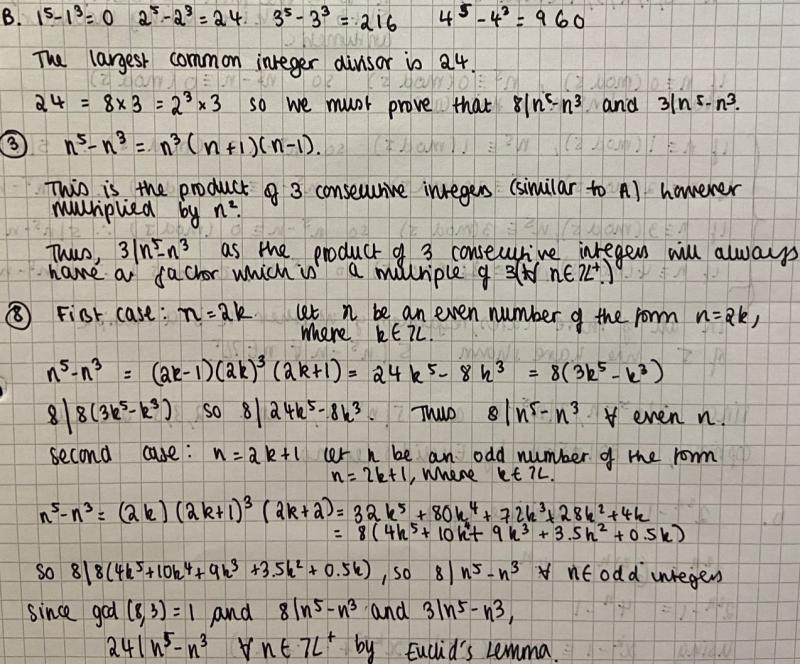 B. 1⁵-1³=0 2⁵-2³=24. 3⁵-3³=216 4⁵-4³=960
The largest common integer divisor is 24.
24 = 8×3 = 2³×3 so we must prove that 8|n⁵-n³ and 3|n⁵-n³.
③ n⁵-n³ = n³(n+1)(n-1).
This is the product of 3 consecutive integers (similar to A) however
multiplied by n².
Thus, 3|n⁵-n³ as the product of 3 consecutive integers will always
have a factor which is a multiple of 3(∀ n∈ℤ⁺.)
⑧ First case: n=2k let n be an even number of the form n=2k,
where k∈ℤ.
n⁵-n³ = (2k-1)(2k)³(2k+1) = 24k⁵-8k³ = 8(3k⁵-k³)
8|8(3k⁵-k³) so 8|24k⁵-8k³. Thus 8|n⁵-n³ ∀ even n.
second case: n=2k+1 let n be an odd number of the form
n=2k+1, where k∈ℤ.
n⁵-n³ = (2k)(2k+1)³(2k+2) = 32k⁵+80k⁴+72k³+28k²+4k
= 8(4k⁵+10k⁴+9k³+3.5k²+0.5k)
So 8|8(4k⁵+10k⁴+9k³+3.5k²+0.5k), so 8|n⁵-n³ ∀ n∈ odd integers
Since gcd(8,3)=1 and 8|n⁵-n³ and 3|n⁵-n³,
24|n⁵-n³ ∀n∈ℤ⁺ by Euclid's Lemma.